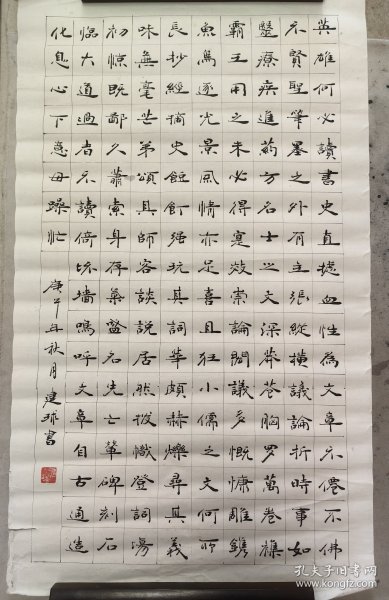 英雄何必讀書史直攄血性為文章不僊不佛
不賢聖筆墨之外有主張縱橫議論析時事如
醫療疾進藥方名士之文深莽苍胸罗萬卷雜
霸王用之未必得寔效崇論閎議多慨慷雕鐫
魚鳥逐光景風情亦足喜且狂小儒之文何所
長抄經摘史餖飣强玩其詞華頗赫爍尋其義
味無毫芒弟頌其師客談説居然拔幟登詞場
初惊既鄙久蕭索身存氣盛名先亡輦碑刻石
臨大道過者不讀倚坏墻嗚呼文章自古通造
化息心下意毋躁忙
庚午年秋月建球書
孔夫子旧书网